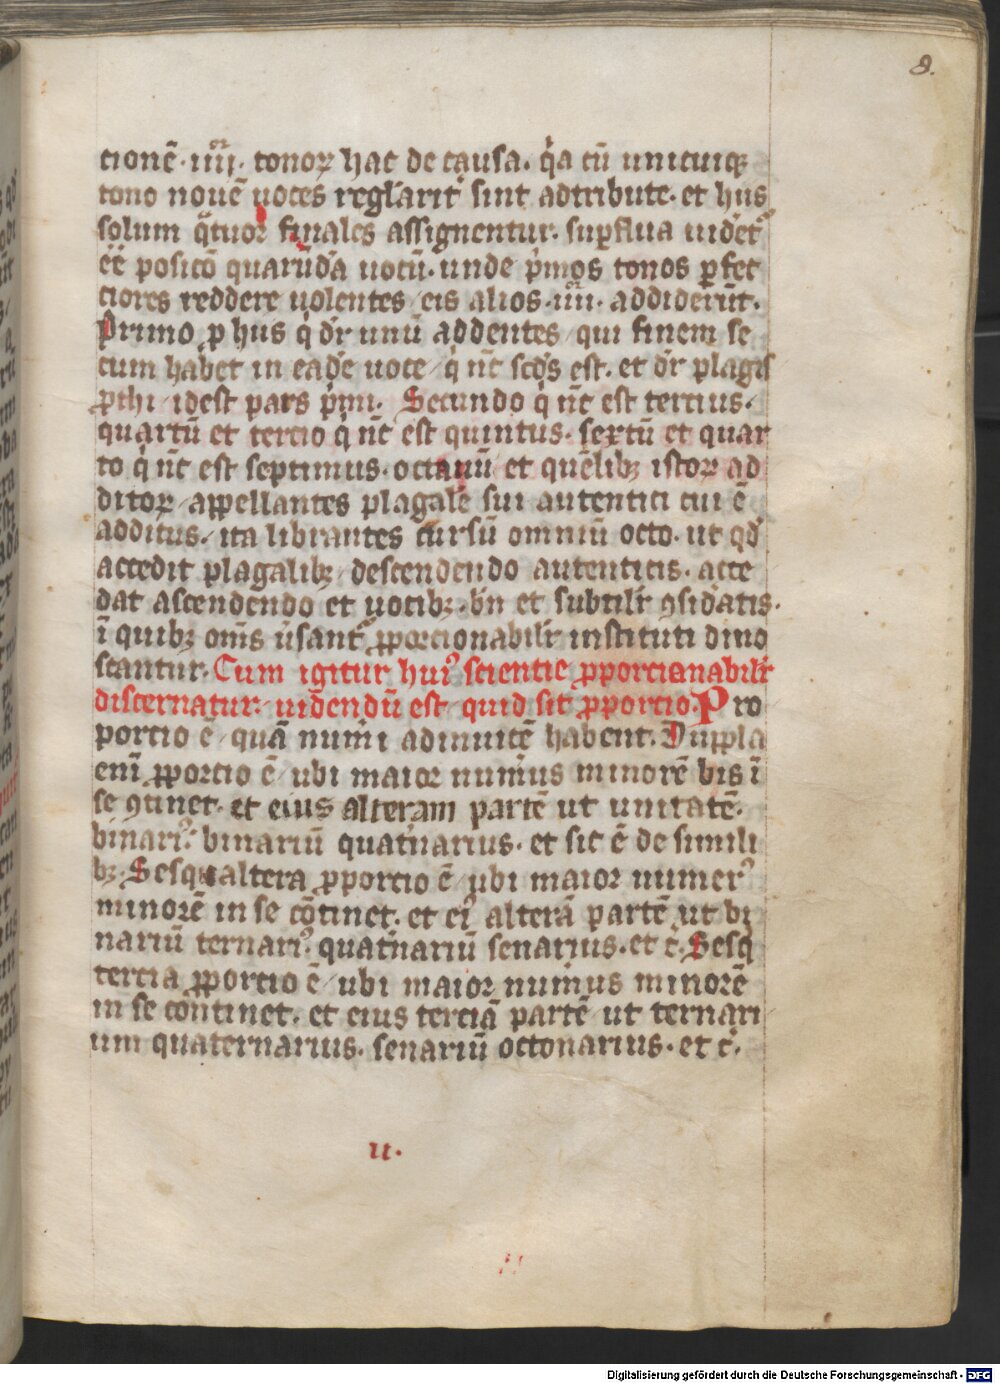 8.
cionē · iiiiᵒʳ · tonoꝝ hac de causa · q̇a cū unicuiqꝫ
tono nouē uoces regl̓arit᷑ sint adtribute · et hus
solum q̈tuor finales assignentur · suꝑflua uidet᷑
ēē posicō quarūd̓a uocū · unde p̓mos tonos ꝑfec
ciores reddere uolentes / eis alios · iiii · addiderūt ·
Primo ꝓ hus q̇ dr̄ unū addentes / qui finem se
cum habet in ead̓e uoce / q̇ nc̄ scd̓s est · et dr̄ plagis
ꝓthi / idest pars p̓mi · Secundo q̇ nc̄ est tercius ·
quartū et tercio q̇ nc̄ est quintus · sextū et quar
to q̇ nc̄ est septimus · octauū et quēlibꝫ istoꝝ ad
ditoꝝ / appellantes plagale sui autentici cui ē
additus / ita librantes cursū omniū octo · ut qd̓
accedit plagalibꝫ / descendendo autenticis · acce
dat ascendendo et uocibꝫ · bn̄ et subtilit᷑ ꝯsid̓atis ·
ī quibꝫ om̄s u̓sant᷑ ꝓporcionabilit᷑ instituti dino
scantur · Cum igitur huiꝰ scientie ꝓporcianabilit᷑
discernatur · uid̓endū est / quid sit ꝓporcio · Pro
porcio ē / quā num̓i adinuicē habent · Duppla
enī ꝓporcio ē / ubi maior num̓us minorē bis ī
se ꝯtinet · et eius alteram partē ut unitatē ·
binariꝰ · binariū quat̓narius · et sic ē de simili
bꝫ · Sesqualtera ꝓporcio ē / ubi maior numerꝰ
minorē in se cōtinet · et eiꝰ alterā partē ut bi
nariū ternariꝰ · quat̓nariū senarius · et c̄ · Sesq̇
tercia ꝓporcio ē / ubi maior num̓us minorē
in se continet · et eius terciā partē ut ternari
um quaternarius · senariū octonarius · et c̄ ·
ii ·
Digitalisierung gefördert durch die Deutsche Forschungsgemeinschaft - DFG